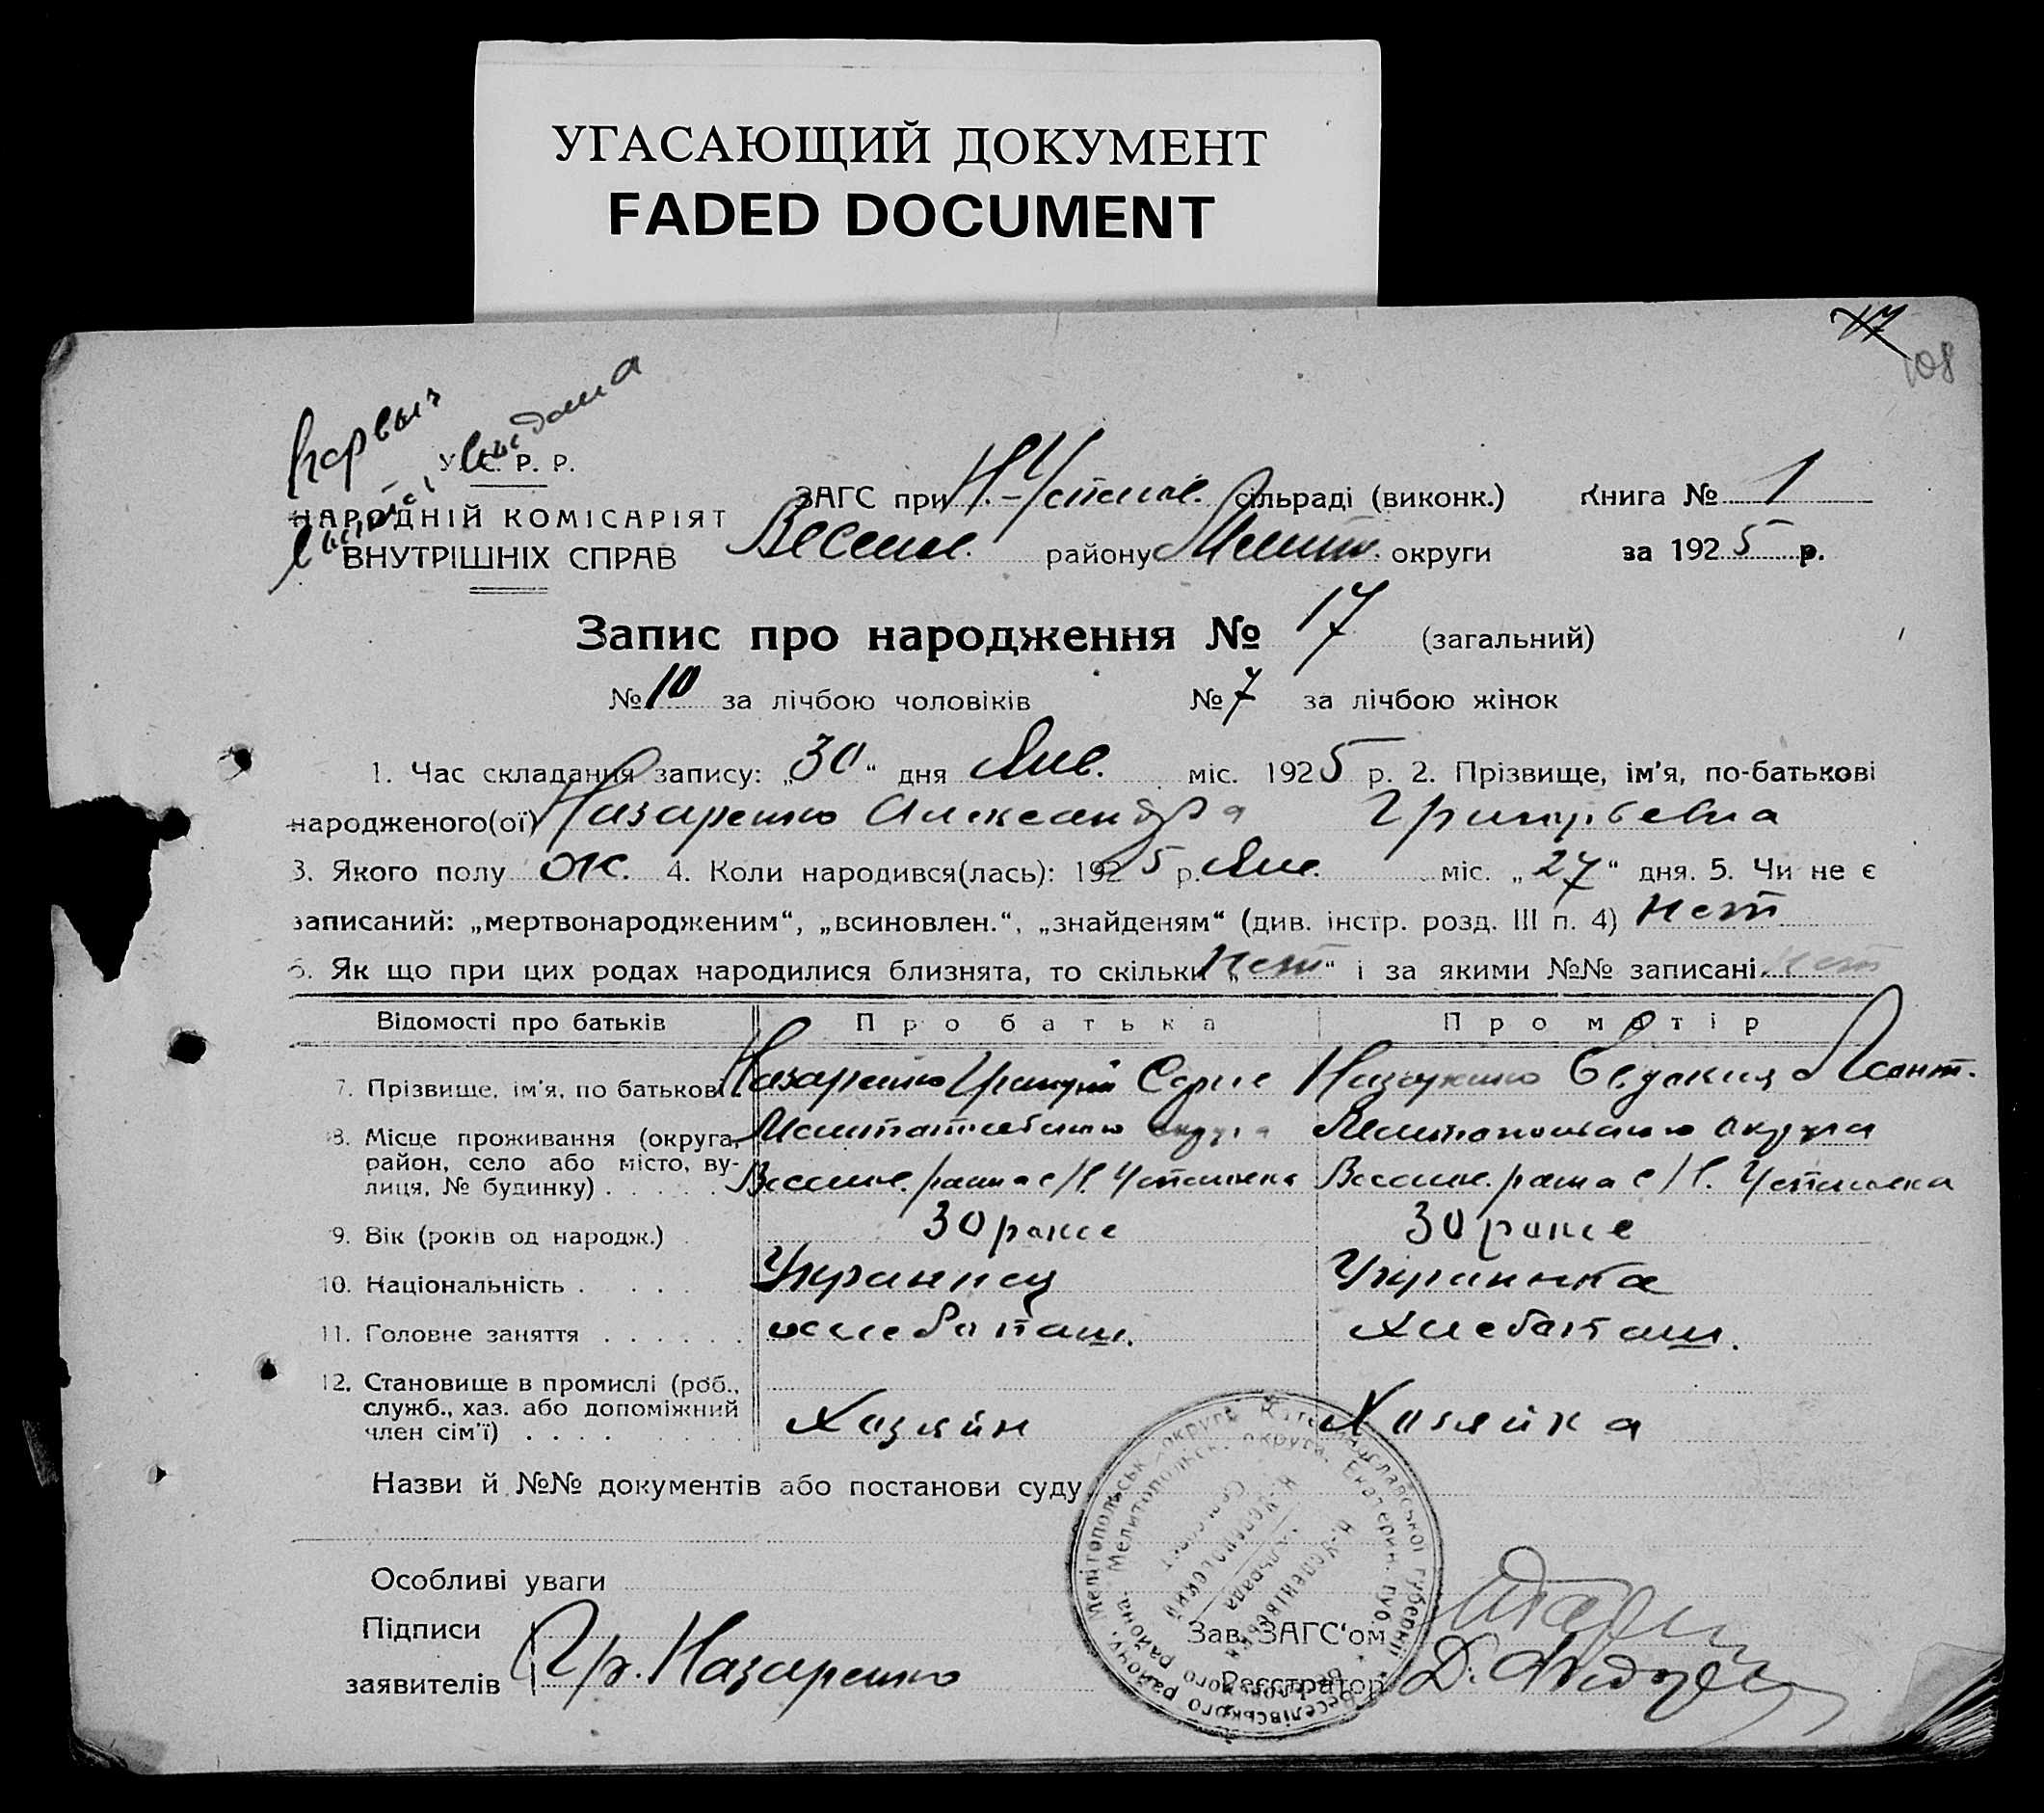 УГАСАЮЩИЙ ДОКУМЕНТ
FADED DOCUMENT
17
108
выдана
У. С. Р. Р.
НАРОДНІЙ КОМІСАРІЯТ
ВНУТРІШНІХ СПРАВ
ЗАГС при Н.-Успенов. сільраді (виконк.) Книга № 1
Весел. району Мелит. округи за 1925 р.
Запис про народження № 17 (загальний)
№ 10 за лічбою чоловіків № 7 за лічбою жінок
1. Час складання запису: „30“ дня Янв. міс. 1925 р. 2. Прізвище, ім’я, по-батькові
народженого(ої) Назаренко Александра Григорьевна
3. Якого полу ж. 4. Коли народився(лась): 1925 р. Янв. міс. „27“ дня. 5. Чи не є
записаний: „мертвонародженим“, „всиновлен.“, „знайденям“ (див. інстр. розд. III п. 4) нет
6. Як що при цих родах народилися близнята, то скільки „нет“ і за якими №№ записані нет
Відомості про батьків Про батька Про матір
7. Прізвище, ім’я, по батькові Назаренко Григорий Назаренко Евдокия
8. Місце проживання (округа, Мелитопольского округа Мелитопольского округа
район, село або місто, ву-
лиця, № будинку) . . . . . Весел. района с/Н. Успеновка Весел. района с/Н. Успеновка
9. Вік (років од народж.) . 30 30
10. Національність . . . . Украинец Украинка
11. Головне заняття . . . . . . хлебопаш. хлебопаш.
12. Становище в промислі (роб.,
служб., хаз. або допоміжний
член сім’ї) . . . . . . . . Хазяин Хазяйка
Назви й №№ документів або постанови суду
Мелітопольськ. округи Катеринославської губернії * Веселівського району,
Мелитопольск. округа, Екатерин. губ. Веселовского района
Н-Успеновский
Сельсовет
Н-Успенівська
сільрада
Особливі уваги
Підписи
заявителів Гр. Назаренко
Зав. ЗАГС‘ом
Реєстратор Д.